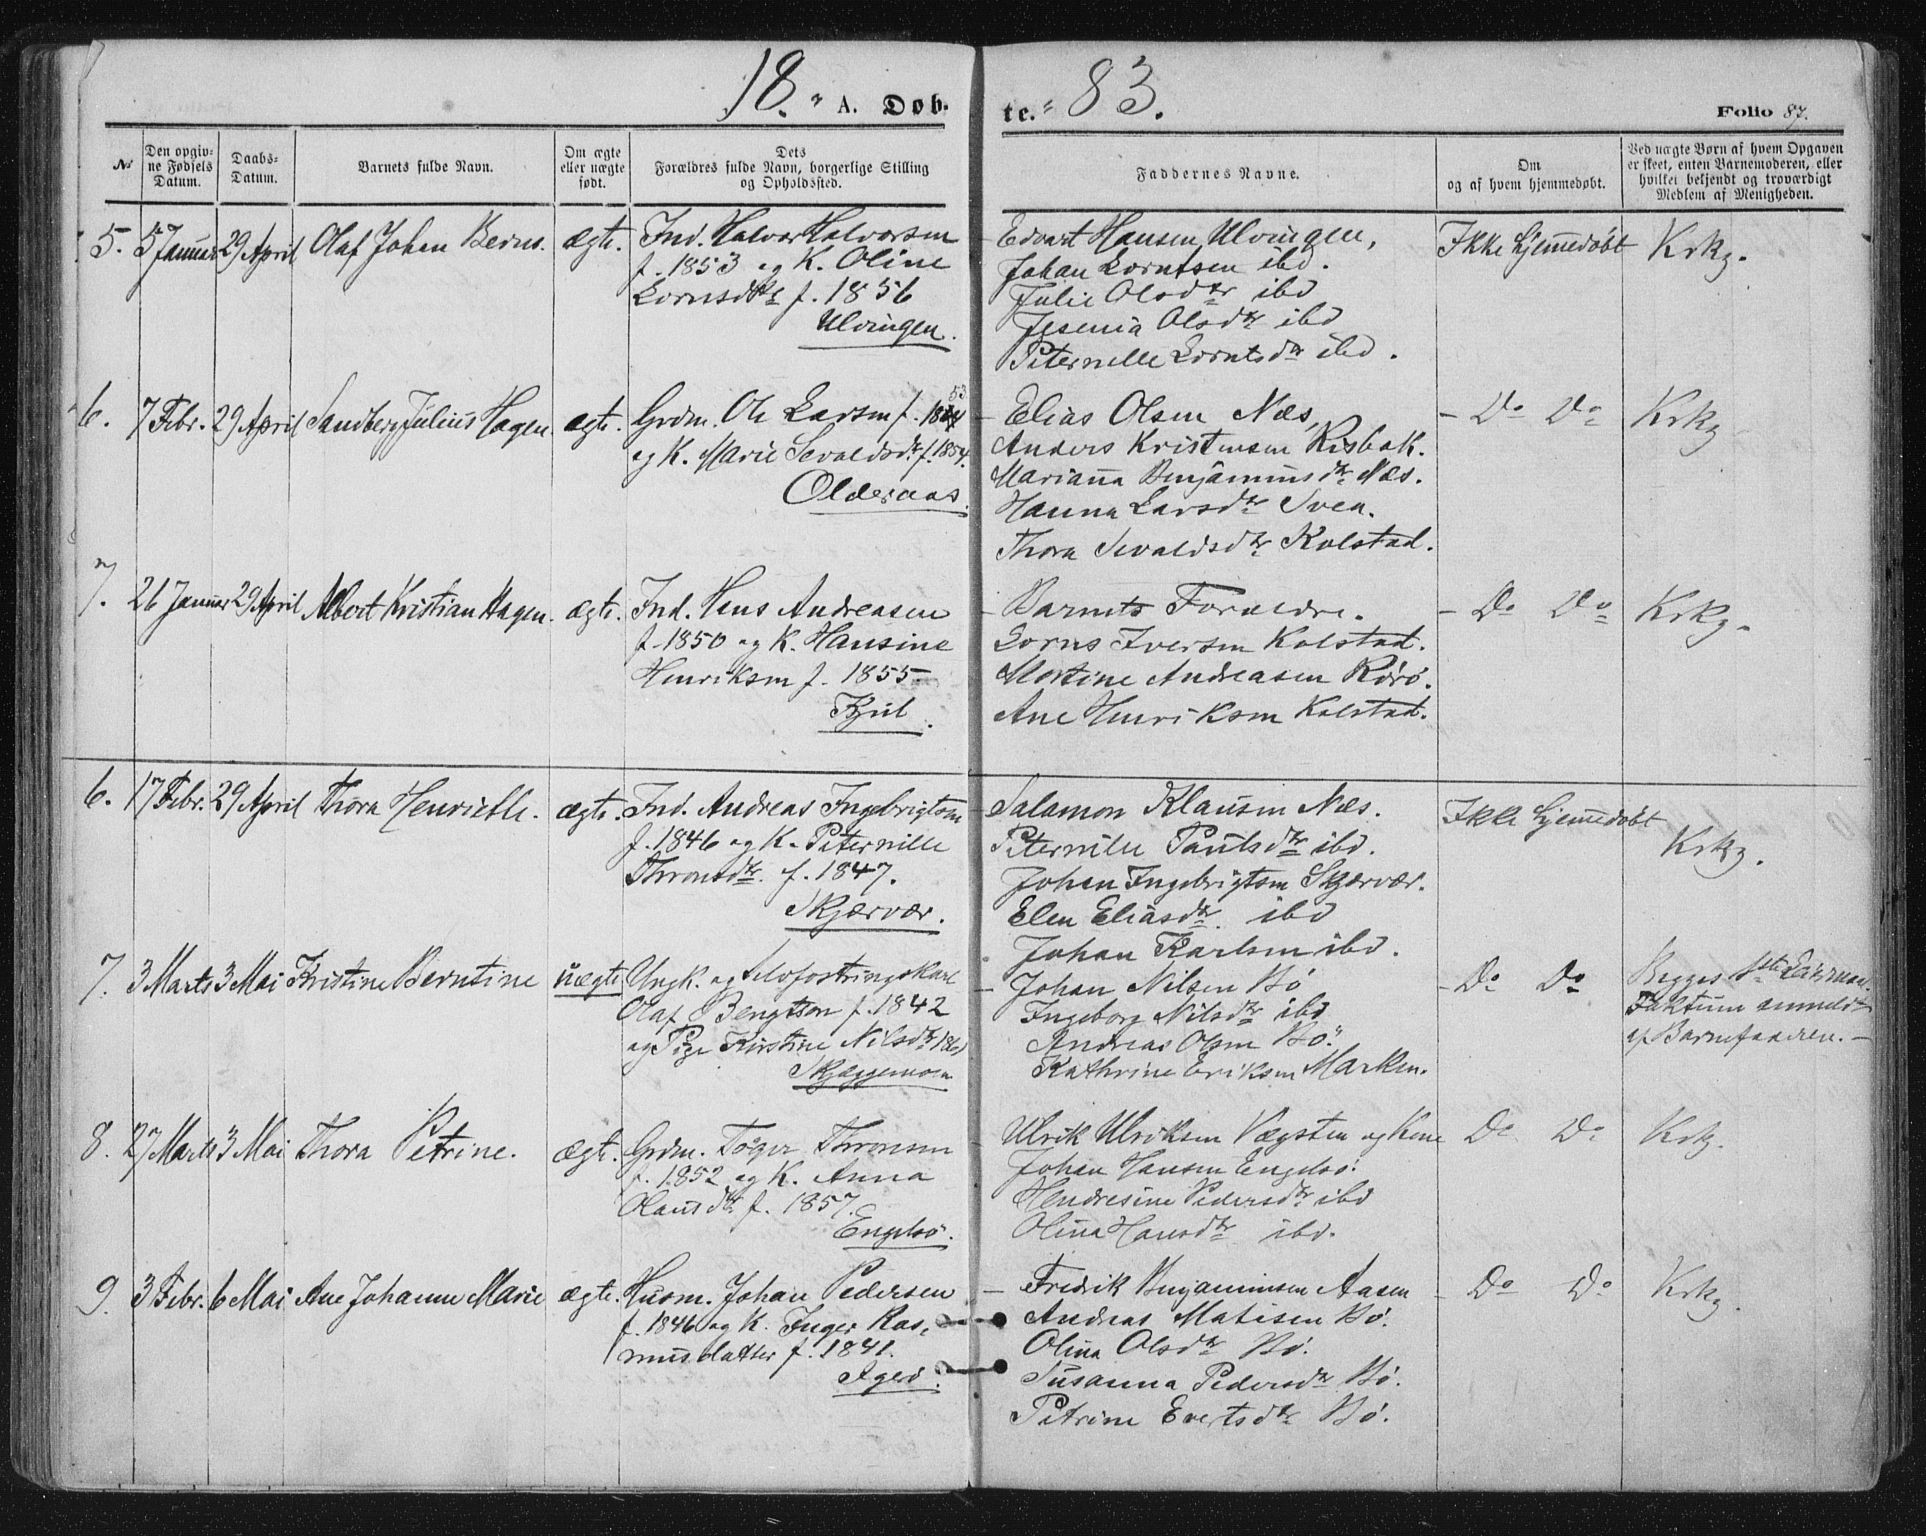 18 " A. Døb-
te. " 83.
Folio 87.
№
Den opgiv-
ne Fødsels
Datum.
Daabs-
Datum.
Barnets fulde Navn.
Om ægte
eller uægte
født.
Dets
Forældres fulde Navn, borgerlige Stilling
og Opholdssted.
Faddernes Navne.
Om
og af hvem hjemmedøbt.
Ved uægte Børn af hvem Opgaven
er skeet, enten Barnemoderen, eller
hvilket bekjendt og troværdigt
Medlem af Menigheden.
5. 5 Januar 29 April Olaf Johan Berns. ægte.
Ind. Halvor Halvorsen
f. 1853 og K. Oline
Lornsdtr f. 1856
Ulvingen.
Edvart Hansen Ulvingen,
Johan Lorntsen ibd.
Julie Olsdtr ibd
Jesenia Olsdtr ibd
Peternelle Lorntsdtr ibd.
Ikke hjemmedøbt
Krkg.
6. 7 Febr. 29 April Sandberg Julius Hagen. ægte.
Grdm. Ole Larsen f. 1853
og K. Marie Sevaldsdtr f. 1854.
Olderaas.
- Elias Olsen Næs,
Anders Kristensen Risbak.
Marianna Benjaminsdtr Næs.
Hanna Larsdtr Sven.
Thora Sevaldsdtr Kolstad.
- Do Do
Krkg
7. 26 Januar 29 April Albert Kristian Hagen. ægte.
Ind. Hans Andreasen
f. 1850 og K. Hansine
Henriksen f. 1855
- Barnets Forældre.
Lorns Iversen Kolstad.
Mortine Andreasen Rørø.
Ane Henriksen Kolstad.
- Do Do
Krkg.
6. 17 Febr. 29 April Thora Henriette. ægte.
Ind. Andreas Ingebrigtsen
f. 1846 og K. Peternille
Thronsdtr. f. 1847.
Skjærvær.
Salamon Klausen Næs.
Peternille Paulsdtr ibd.
Johan Ingebrigtsen Skjærvær.
Elen Eliasdtr. ibd
Johan Karlsen ibd.
Ikke hjemmedøbt
Krkg.
7. 3 Marts 3 Mai Kristine Berntine uægte
Ungk. og Selvfostringskarl
Olaf Bengtson f. 1842
og Pige Kirstine Nilsdtr
Skjæggemoen
- Johan Nilsen Bø
Ingeborg Nilsdtr ibd
Andreas Olsen Bø.
Kathrine Eriksen Marken.
- Do Do
Begges 1ste Leierm.
Faktum anmeldt
af Barnefaderen. -
8. 27 Marts 3 Mai Thora Petrine. ægte.
Grdm. Toger Thronsen
f. 1852 og K. Anna
Olausdtr f. 1857.
Engelsø.
- Ulrik Ulriksen Vægsten og Kone
Johan Hansen Engelsø.
Hendresine Pedersdtr ibd
Olina Hansdtr ibd.
Do Do
Krkg.
9. 3 Febr. 6 Mai Ane Johanna Marie ægte.
Husm. Johan Pedersen
f. 1846 og K. Inger Ras-
musdatter f. 1841.
- Fredrik Benjaminsen Aasen
Andreas Matisen Bø.
Olina Olsdtr Bø.
Susanna Pedersdtr Bø.
Petrine Evertsdtr Bø.
- Do Do
Krkg.